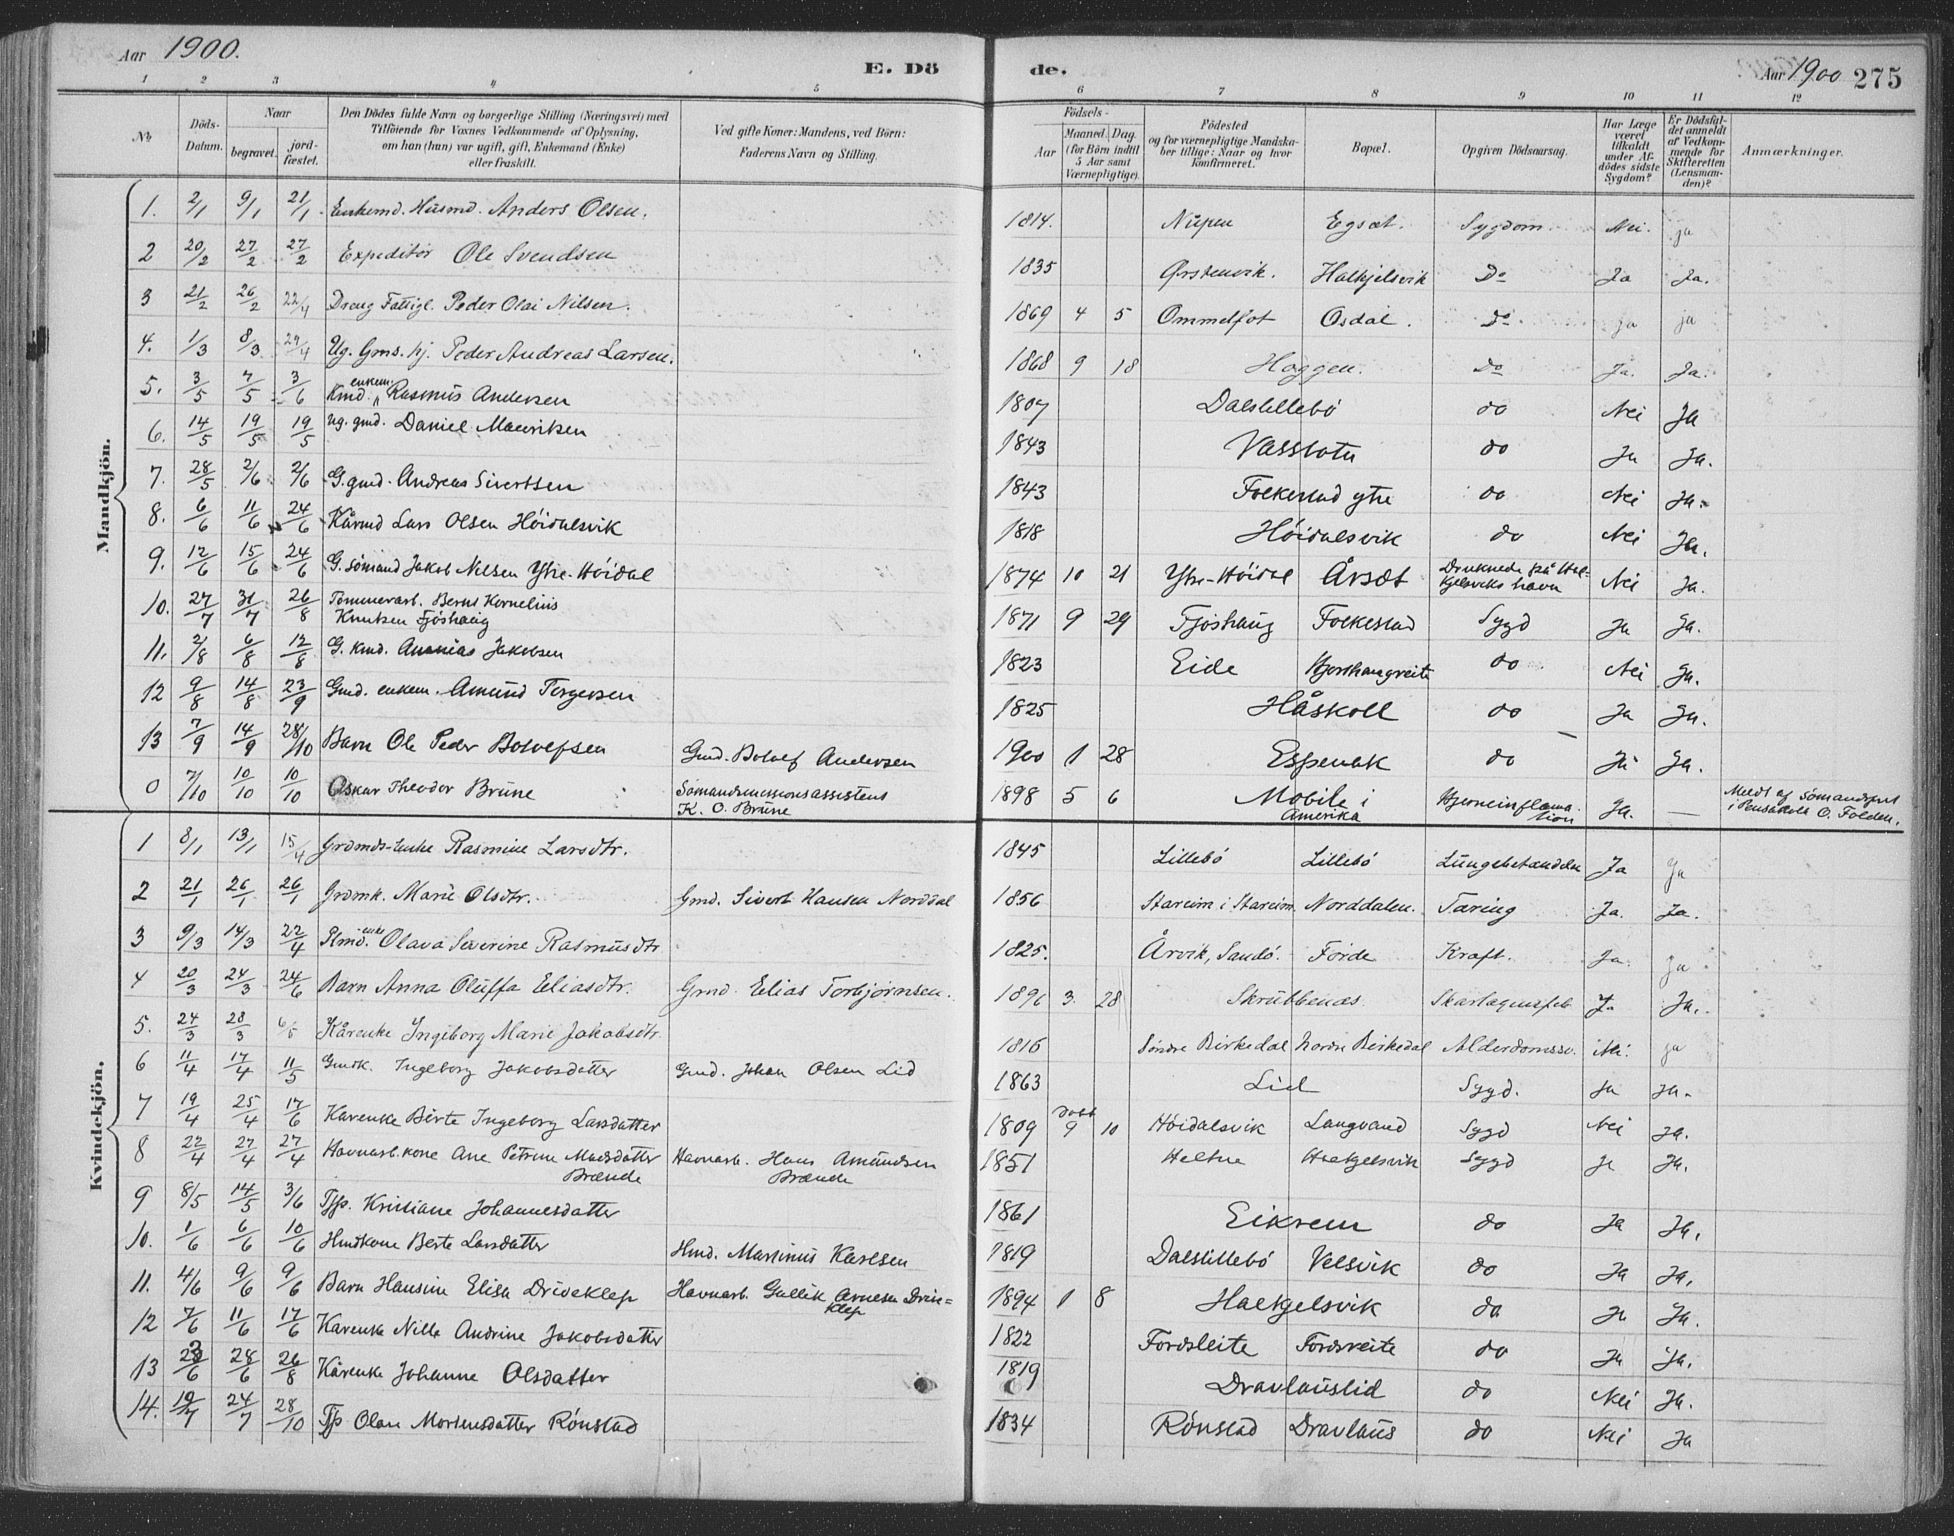 Aar 1900. E. Dö
de. Aar 1900 275
1 2 3 4 5 6 7 8 9 10 11 12
No. Döds-Datum. Naar begravet. jord-fæstet. Den Dödes fulde Navn og borgerlige Stilling (Næringsvei) med Tilföiende for Voxnes Vedkommende af Oplysning, om han (hun) var ugift, gift, Enkemand (Enke) eller fraskilt. Ved gifte Koner: Mandens, ved Börn: Faderens Navn og Stilling. Födsels- Aar Maaned. Dag. (for Börn indtil 5 Aar samt Værnepligtige). Födested og for værnepligtige Mandskaber tillige: Naar og hvor Konfirmeret. Bopæl. Opgiven Dödsaarsag. Har Læge været tilkaldt under Afdödes sidste Sygdom? Er Dödsfaldet anmeldt af Vedkommende for Skifteretten (Lensmanden)? Anmærkninger.
Mandkjön.
1. 2/1 9/1 21/1 Enkemd. Husmd. Anders Olsen. 1814. Nupen Egsæt. Sygdom. Nei. ja
2 20/2 27/2 27/2 Expeditör Ole Svendsen 1835 Ørstenvik. Halkjelsvik Do Ja Ja.
3 21/2 26/2 22/4 Dreng Fattigl. Peder Olai Nilsen. 1869 4 5 Ommelfot Osdal. Do ja ja
4. 1/3 8/3 29/4 Ug. Gms. kj. Peder Andreas Larsen. 1868 9 18 Haggen. Do Ja. Ja.
5. 3/5 7/5 3/6 Kmd. enkem. Rasmus Andersen 1807 Dalslillebö do Nei Ja
6. 14/5 19/5 19/5 ug. gmd. Daniel Mauritsen 1843 Vassbotn do Ja Ja.
7. 28/5 2/6 2/6 G. gmd. Andreas Sivertsen 1843 Folkestad ytre do Nei Ja.
8. 6/6 11/6 24/6 Kårmd Lars Olsen Höidalsvik 1818 Höidalsvik do Nei Ja.
9. 12/6 15/6 24/6 G. sömand Jakob Nilsen Ytre-Höidal 1874 10 21 Ytre-Höidal Årsæt Druknede på Hal-
kjelsviks havn Nei Ja.
10. 27/7 31/7 26/8 Tömmerarb. Bernt Kornelius
Knutsen Fjöshaug 1871 9 29 Fjöshaug Folkestad Sygd Ja Ja.
11. 2/8 6/8 12/8 G. kmd. Ananias Jakobsen 1823 Eide Hjorthaugreite do Nei Ja.
12 9/8 14/8 23/9 Gmd. enkem. Amund Torgersen 1825 Håskoll do Ja Ja.
13 7/9 14/9 28/10 Barn Ole Peder Botolfsen Gmd. Botolf Andersen 1900 1 28 Espenak do Ja Ja.
0 7/10 10/10 10/10 Oskar Theodor Brune Sömandsmissionsassistens
K. O. Brune 1898 5 6 Mobile i
Amerika Hjerneinflama-
tion Ja. — Meldt af Sömandsprst
i Pensakola O. Folden.
Kvindekjön.
1 8/1 13/1 15/4 Grdmds-Enke Rasmine Larsdtr. 1845 Lillebö Lillebö Lungebetændelse Ja ja
2 21/1 26/1 26/1 Grdmk. Marie Olsdtr. Gmd. Sivert Hansen Norddal 1856 Stareim i Stareim. Norddalen. Tæring Ja. Ja.
3 9/3 14/3 22/4 enke Olava Severine Rasmusdtr 1825. Årvik, Sandö. Förde Kræft. Ja. ja
4 20/3 24/3 24/6 Barn Anna Oluffa Eliasdtr. Gmd. Elias Torbjörnsen. 1896 3. 28 Skrubbenæs. Skarlagensfeb. Ja Ja.
5. 24/3 28/3 Kårenke Ingeborg Marie Jakobsdtr. 1816 Söndre Birkedal Nordre Birkedal Alderdomssv. Nei. ja
6 11/4 17/4 11/5 Gmdk. Ingeborg Jakobsdatter Gmd. Johan Olsen Lid 1863 Lid Sygd. Ja Ja.
7 19/4 25/4 17/6 Kårenke Berte Ingeborg Larsdatter 1809 döbt 9 10 Höidalsvik Langvand Sygd Nei Ja.
8 22/4 27/4 27/4 Havnarb. kone Ane Petrine Madsdatter
Brænde Havnarb. Hans Amundsen
Brænde 1851 Heltne Halkjelsvik Sygd Ja Ja.
9 8/5 14/5 3/6 Tjp. Kristiane Johannesdatter 1861 Eikrem do Ja Ja.
10. 1/6 6/6 10/6 Hmdkone Berte Larsdatter Hmd. Martinus Karlsen 1819 Dalslillebö Velsvik do Ja Ja.
11. 4/6 9/6 9/6 Barn Hansine Elisa Driveklep Havnarb. Gullik Arnesen Drive-
klep 1894 1 8 Halkjelsvik do Ja Ja.
12 7/6 11/6 17/6 Kårenke Nille Andrine Jakobsdatter 1822 Fordsleite Fordsreite do Ja Ja.
13 23/6 28/6 26/8 Kårenke Johanne Olsdatter 1819 Dravlauslid do Nei Ja.
14. 19/7 24/7 28/10 Tjp Olave Mortensdatter Rönstad 1834 Rönstad Dravlaus do Nei Ja